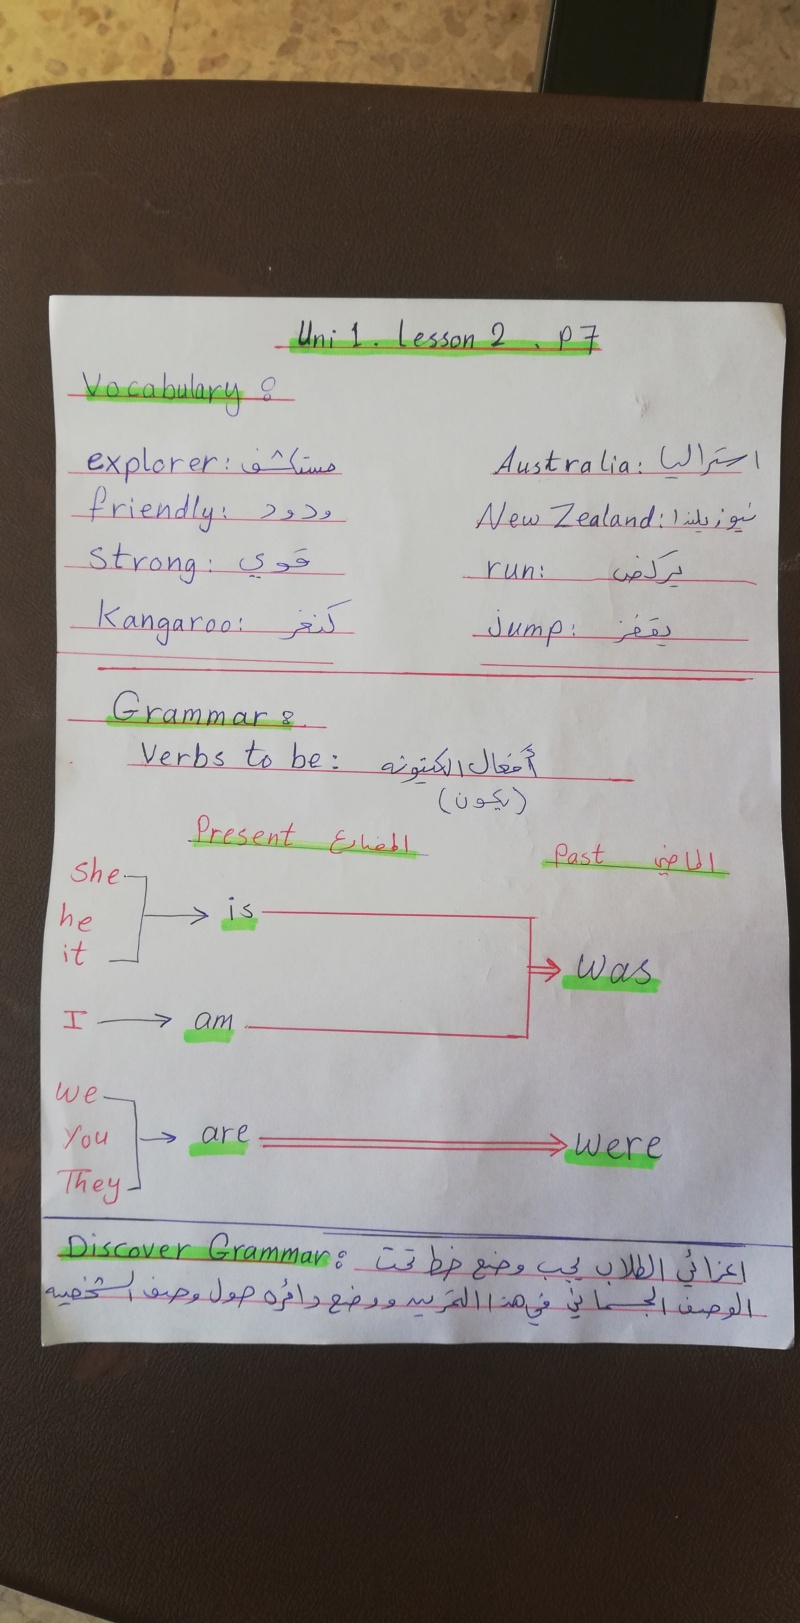 Uni 1. Lesson 2. P7
Vocabulary:
explorer: مستكشف
friendly: ودود
strong: قوي
Kangaroo: كنغر
Australia: استراليا
New Zealand: نيوزيلندا
run: يركض
jump: يقفز
Grammar:
Verbs to be: أفعال الكينونه
(يكون)
Present المضارع
Past الماضي
she
he
it
is
was
I
am
we
You
They
are
were
Discover Grammar: اعزائي الطلاب يجب وضع خط تحت
الوصف الجسماني في هذا التمرين ووضع دائره حول وصف الشخصيه